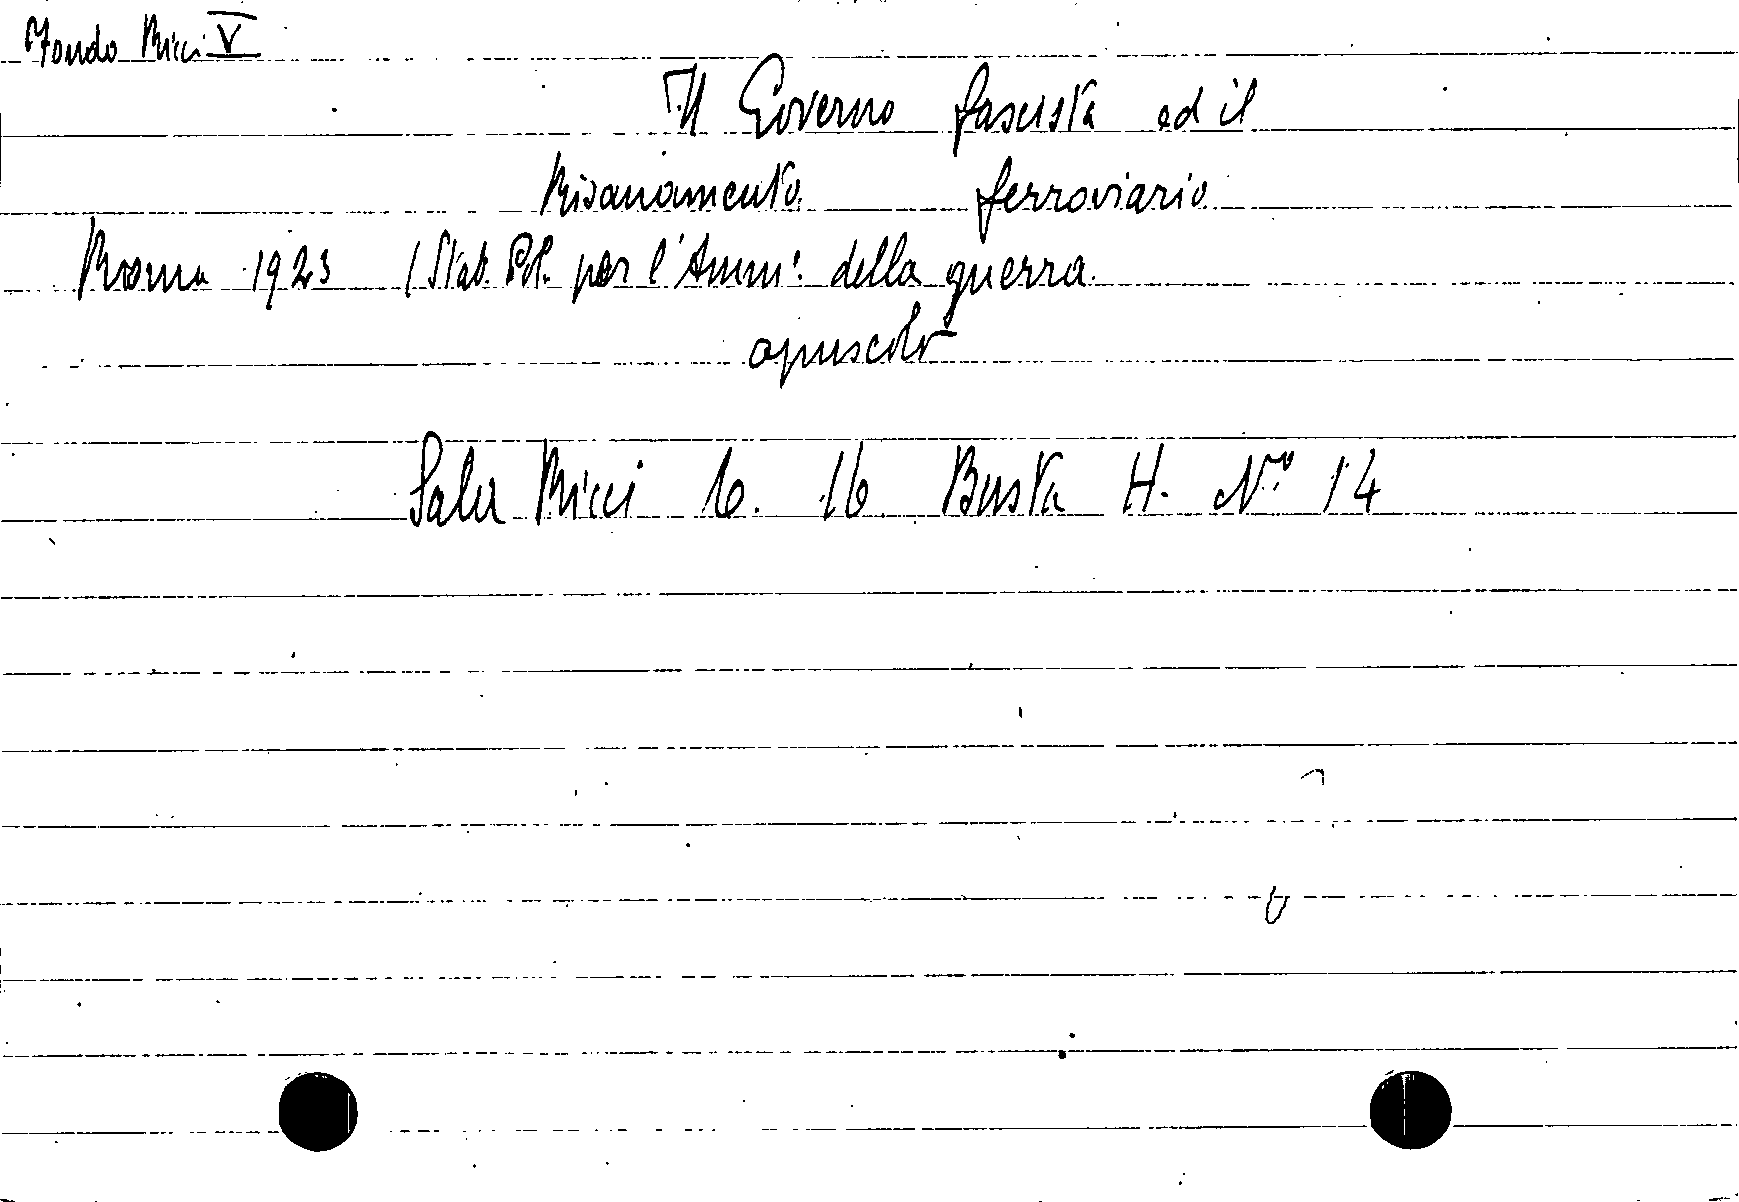 Fondo Ricci V
Il Governo fascista ed il
Risanamento ferroviario
Roma 1923 (Stab. Pol. per l'Amm: della guerra.
opuscolo
Sala Ricci 6. 16 Busta H. No 14